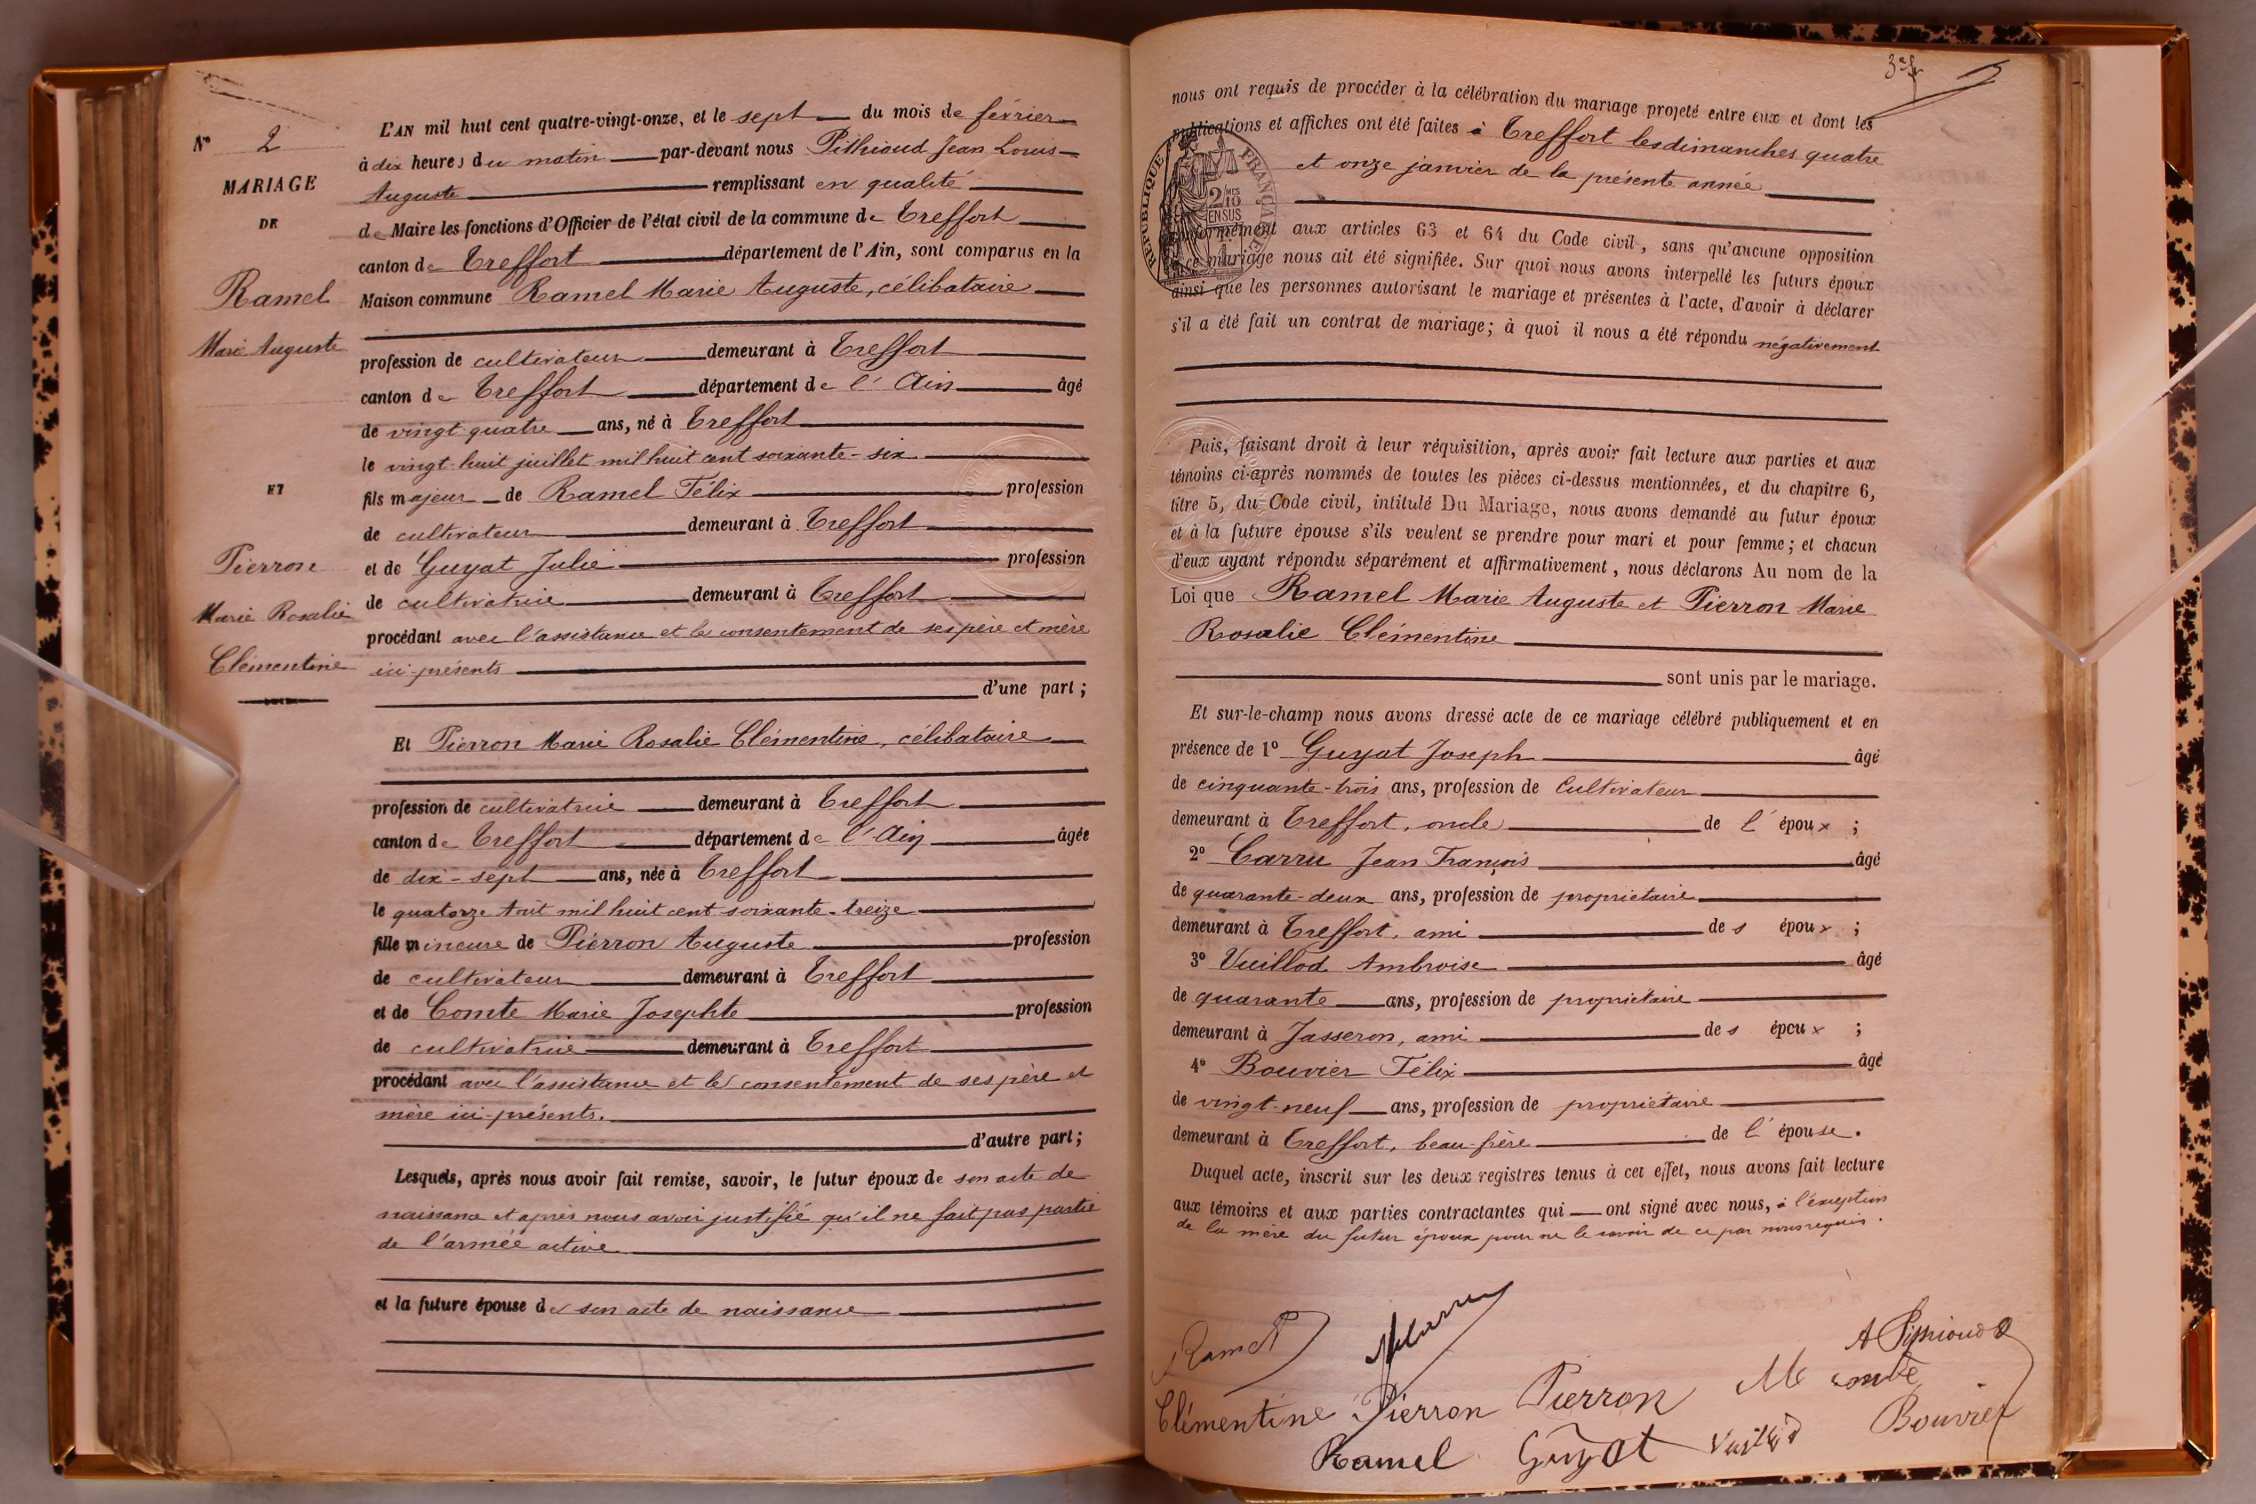 N° 2
MARIAGE
DE
Ramel
Marie Auguste
ET
Pierron
Marie Rosalie
Clémentine
L'AN mil huit cent quatre-vingt-onze, et le sept du mois de février
à dix heures du matin par-devant nous Pithioud Jean Louis
Auguste remplissant en qualité
de Maire les fonctions d'Officier de l'état civil de la commune de Treffort
canton de Treffort département de l'Ain, sont comparus en la
Maison commune Ramel Marie Auguste, célibataire
profession de cultivateur demeurant à Treffort
canton de Treffort département de l'Ain âgé
de vingt-quatre ans, né à Treffort
le vingt-huit juillet mil huit cent soixante-six
fils majeur de Ramel Félix profession
de cultivateur demeurant à Treffort
et de Guyat Julie profession
de cultivatrice demeurant à Treffort
procédant avec l'assistance et le consentement de ses père et mère
ici-présents
d'une part;
Et Pierron Marie Rosalie Clémentine, célibataire
profession de cultivatrice demeurant à Treffort
canton de Treffort département de l'Ain âgée
de dix-sept ans, née à Treffort
le quatorze Août mil huit cent soixante-treize
fille mineure de Pierron Auguste profession
de cultivateur demeurant à Treffort
et de Comte Marie Josephte profession
de cultivatrice demeurant à Treffort
procédant avec l'assistance et le consentement de ses père et
mère ici-présents.
d'autre part;
Lesquels, après nous avoir fait remise, savoir, le futur époux de son acte de
naissance et après nous avoir justifié qu'il ne fait pas partie
de l'armée active
et la future épouse de son acte de naissance
nous ont requis de procéder à la célébration du mariage projeté entre eux et dont les
publications et affiches ont été faites à Treffort les dimanches quatre
et onze janvier de la présente année
RÉPUBLIQUE FRANÇAISE
2/10 EN SUS
conformément aux articles 63 et 64 du Code civil, sans qu'aucune opposition
à ce mariage nous ait été signifiée. Sur quoi nous avons interpellé les futurs époux
ainsi que les personnes autorisant le mariage et présentes à l'acte, d'avoir à déclarer
s'il a été fait un contrat de mariage; à quoi il nous a été répondu négativement
Puis, faisant droit à leur réquisition, après avoir fait lecture aux parties et aux
témoins ci-après nommés de toutes les pièces ci-dessus mentionnées, et du chapitre 6,
titre 5, du Code civil, intitulé Du Mariage, nous avons demandé au futur époux
et à la future épouse s'ils veulent se prendre pour mari et pour femme; et chacun
d'eux ayant répondu séparément et affirmativement, nous déclarons Au nom de la
Loi que Ramel Marie Auguste et Pierron Marie
Rosalie Clémentine
sont unis par le mariage.
Et sur-le-champ nous avons dressé acte de ce mariage célébré publiquement et en
présence de 1° Guyat Joseph âgé
de cinquante-trois ans, profession de Cultivateur
demeurant à Treffort, oncle de l'époux;
2° Carru Jean François âgé
de quarante-deux ans, profession de propriétaire
demeurant à Treffort, ami des époux;
3° Vuillod Ambroise âgé
de quarante ans, profession de propriétaire
demeurant à Jasseron, ami des époux;
4° Bouvier Félix âgé
de vingt-neuf ans, profession de propriétaire
demeurant à Treffort, beau-frère de l'épouse.
Duquel acte, inscrit sur les deux registres tenus à cet effet, nous avons fait lecture
aux témoins et aux parties contractantes qui ont signé avec nous, à l'exception
de la mère du futur époux pour ne le savoir de ce par nous requis.
Ramel
A Pithioud
Clémentine Pierron Pierron M Comte
Ramel Guyat Vuillod Bouvier